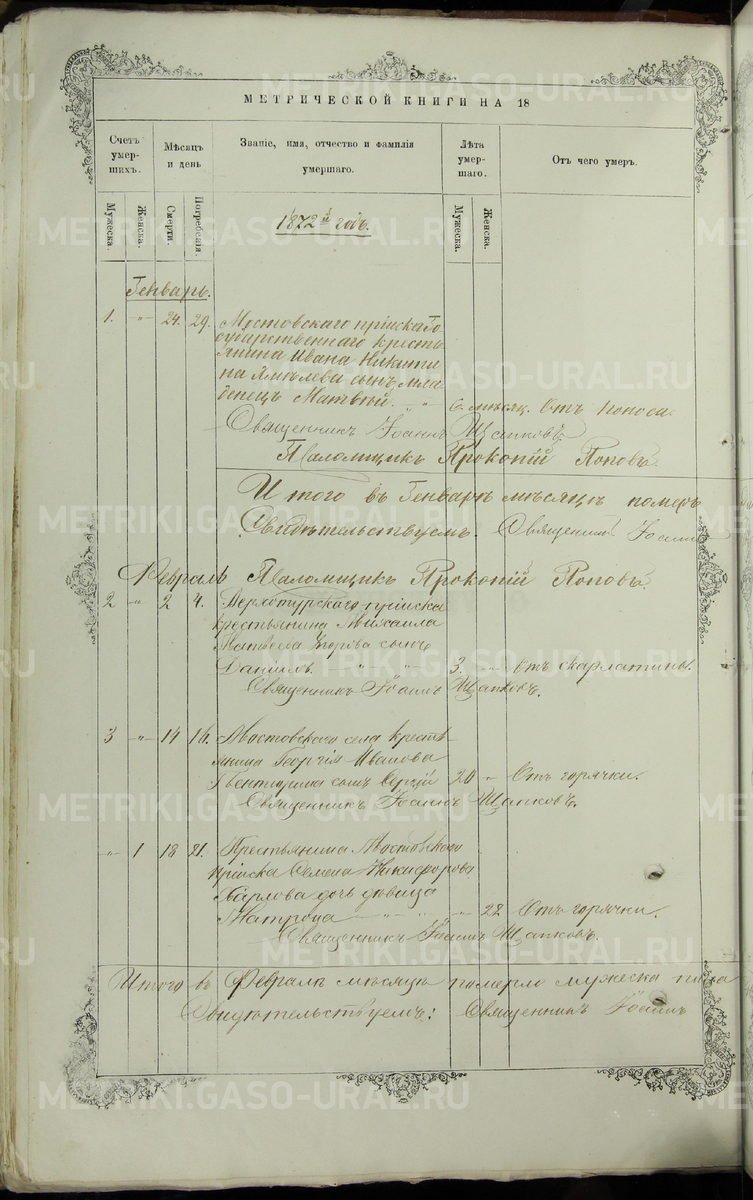 МЕТРИЧЕСКОЙ КНИГИ НА 18
Счетъ умер-шихъ.
Мѣсяцъ и день
Званіе, имя, отчество и фамилія умершаго.
Лѣта умер-шаго.
Отъ чего умеръ.
Мужеска.
Женска.
Смерти.
Погребенія.
Мужеска.
Женска.
1872й годъ.
Генварь.
1. " 24. 29. Мостовскаго пріиска Го
сударственнаго кресть
янина Ивана Никити
на сынъ мла
денецъ Матвѣй. " 6 мѣсяц. Отъ поноса.
Священникъ Іоаннъ Щапковъ
Псаломщикъ Прокопій Поповъ.
Итого въ Генварѣ мѣсяцѣ померъ
Свидѣтельствуемъ. Священникъ Іоаннъ
Февраль Псаломщикъ Прокопій Поповъ.
2 " 2 4. Верхотурскаго пріиска
крестьянина Михаила
Матвѣева сынъ
Даніилъ. " " 3. " Отъ скарлатины.
Священникъ Іоаннъ Щапковъ.
3 " 14 16. Мостовскаго села кресть
янина Георгія Иванова
сынъ Сергій 20 " Отъ горячки.
Священникъ Іоаннъ Щапковъ.
" 1 18 21. Крестьянина Мостовскаго
пріиска Семена Никифорова
дочь дѣвица
" " 22 Отъ горячки.
Священникъ Іоаннъ Щапковъ.
Итого въ Февралѣ мѣсяцѣ померло мужеска пола
Свидѣтельствуемъ: Священникъ Іоаннъ
METRIKI.GASO-URAL.RU